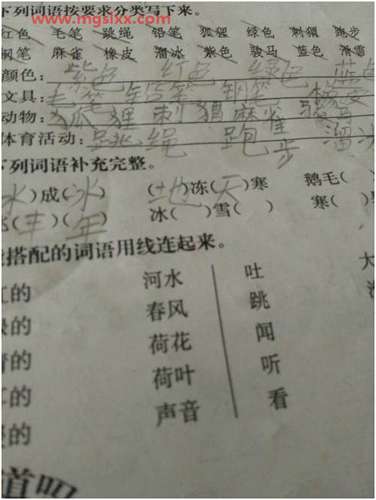 www.mgslxx.com
下列词语按要求分类写下来。
红色 毛笔 跳绳 铅笔 狐狸 绿色 刺猬 跑步
钢笔 麻雀 橡皮 溜冰 紫色 骏马 蓝色 滑雪
颜色：紫色 红色 绿色 蓝色
文具：毛笔 铅笔 钢笔 橡皮
动物：狐狸 刺猬 麻雀
体育活动：跳绳 跑步 溜冰
下列词语补充完整。
(水)成(冰) (地)冻(天)寒 鹅毛(
(丰)(年) 冰( )雪( ) 寒(
搭配的词语用线连起来。
红的 河水 吐
的 春风 跳
的 荷花 闻
的 荷叶 听
的 声音 看
道吗